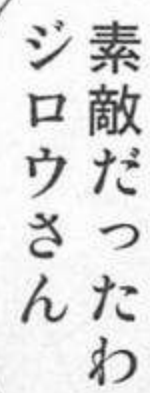 素敵だったわ
ジロウさん